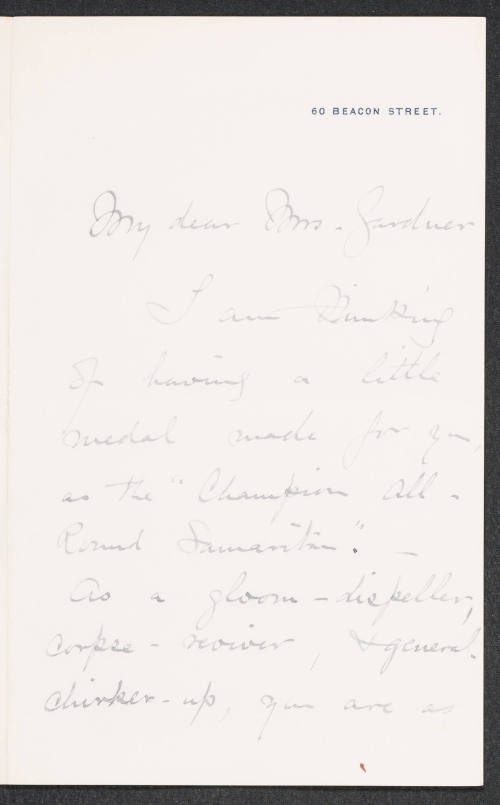 60 BEACON STREET.
My dear Mrs. Gardner
I am thinking
of having a little
medal made for you,
as the "Champion All-
Round Samaritan". —
As a gloom-dispeller,
corpse-reviver, & general
chirker-up, you are as